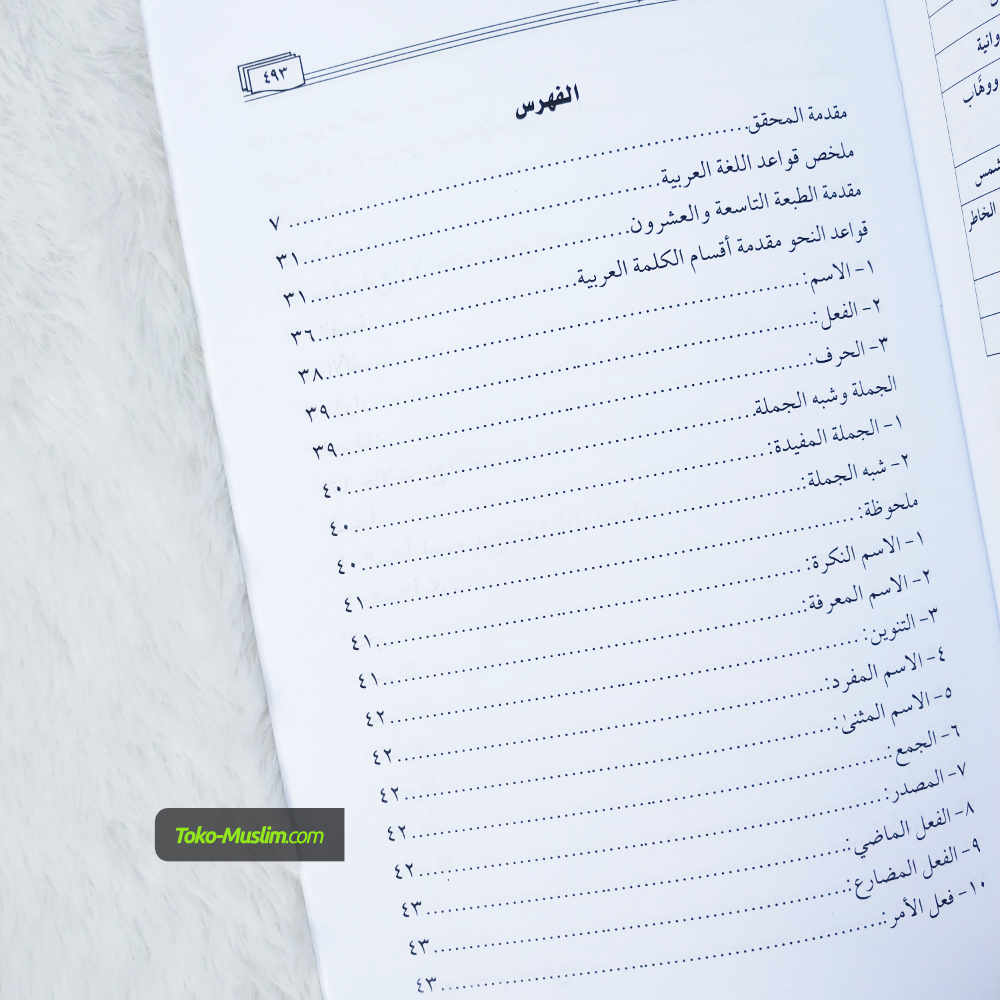 ٤٩٣
الفهرس
مقدمة المحقق ٧
ملخص قواعد اللغة العربية ٣١
مقدمة الطبعة التاسعة والعشرون ٣١
قواعد النحو مقدمة أقسام الكلمة العربية ٣٦
١- الاسم: ٣٨
٢- الفعل: ٣٩
٣- الحرف: ٣٩
الجملة وشبه الجملة ٤٠
١- الجملة المفيدة: ٤٠
٢- شبه الجملة: ٤٠
ملحوظة: ٤١
١- الاسم النكرة: ٤١
٢- الاسم المعرفة: ٤١
٣- التنوين: ٤٢
٤- الاسم المفرد: ٤٢
٥- الاسم المثنىٰ: ٤٢
٦- الجمع: ٤٢
٧- المصدر: ٤٢
٨- الفعل الماضي: ٤٣
٩- الفعل المضارع: ٤٣
١٠- فعل الأمر: ٤٣
ووهَّاب
الخاطر
Toko-Muslim.com